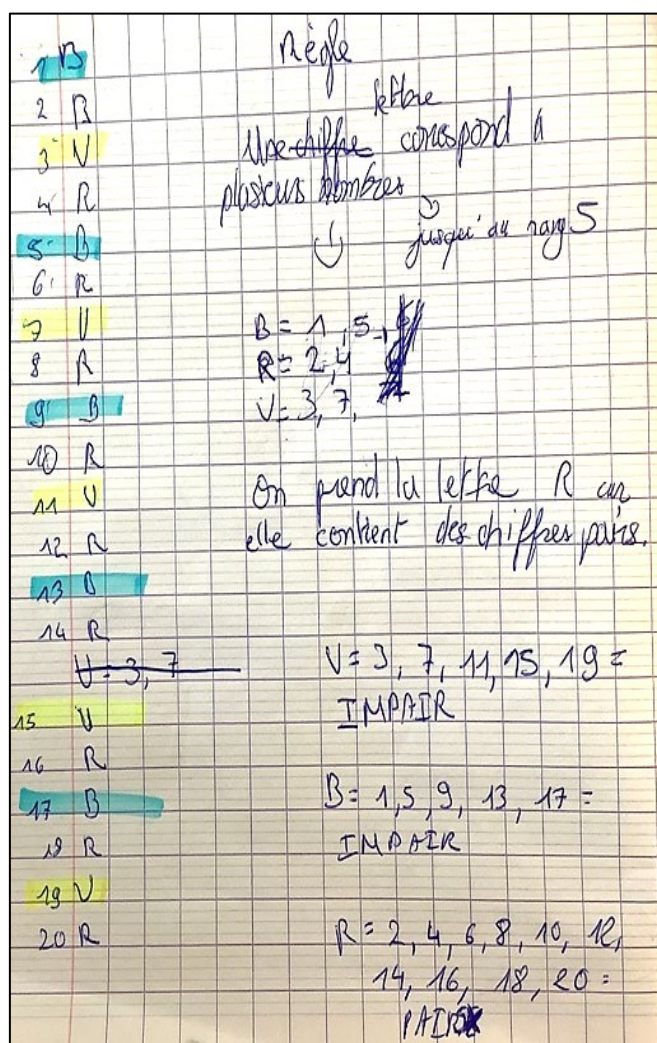 1 B
2 B
3 V
4 R
5 B
6 R
7 V
8 R
9 B
10 R
11 V
12 R
13 B
14 R
V = 3, 7
15 V
16 R
17 B
18 R
19 V
20 R
Règle
lettre
Une chiffre correspond à
plusieurs nombres
jusqu'au rang 5
B = 1, 5,
R = 2, 4
V = 3, 7,
On prend la lettre R car
elle contient des chiffres pairs.
V = 3, 7, 11, 15, 19 =
IMPAIR
B = 1, 5, 9, 13, 17 =
IMPAIR
R = 2, 4, 6, 8, 10, 12,
14, 16, 18, 20 =
PAIR